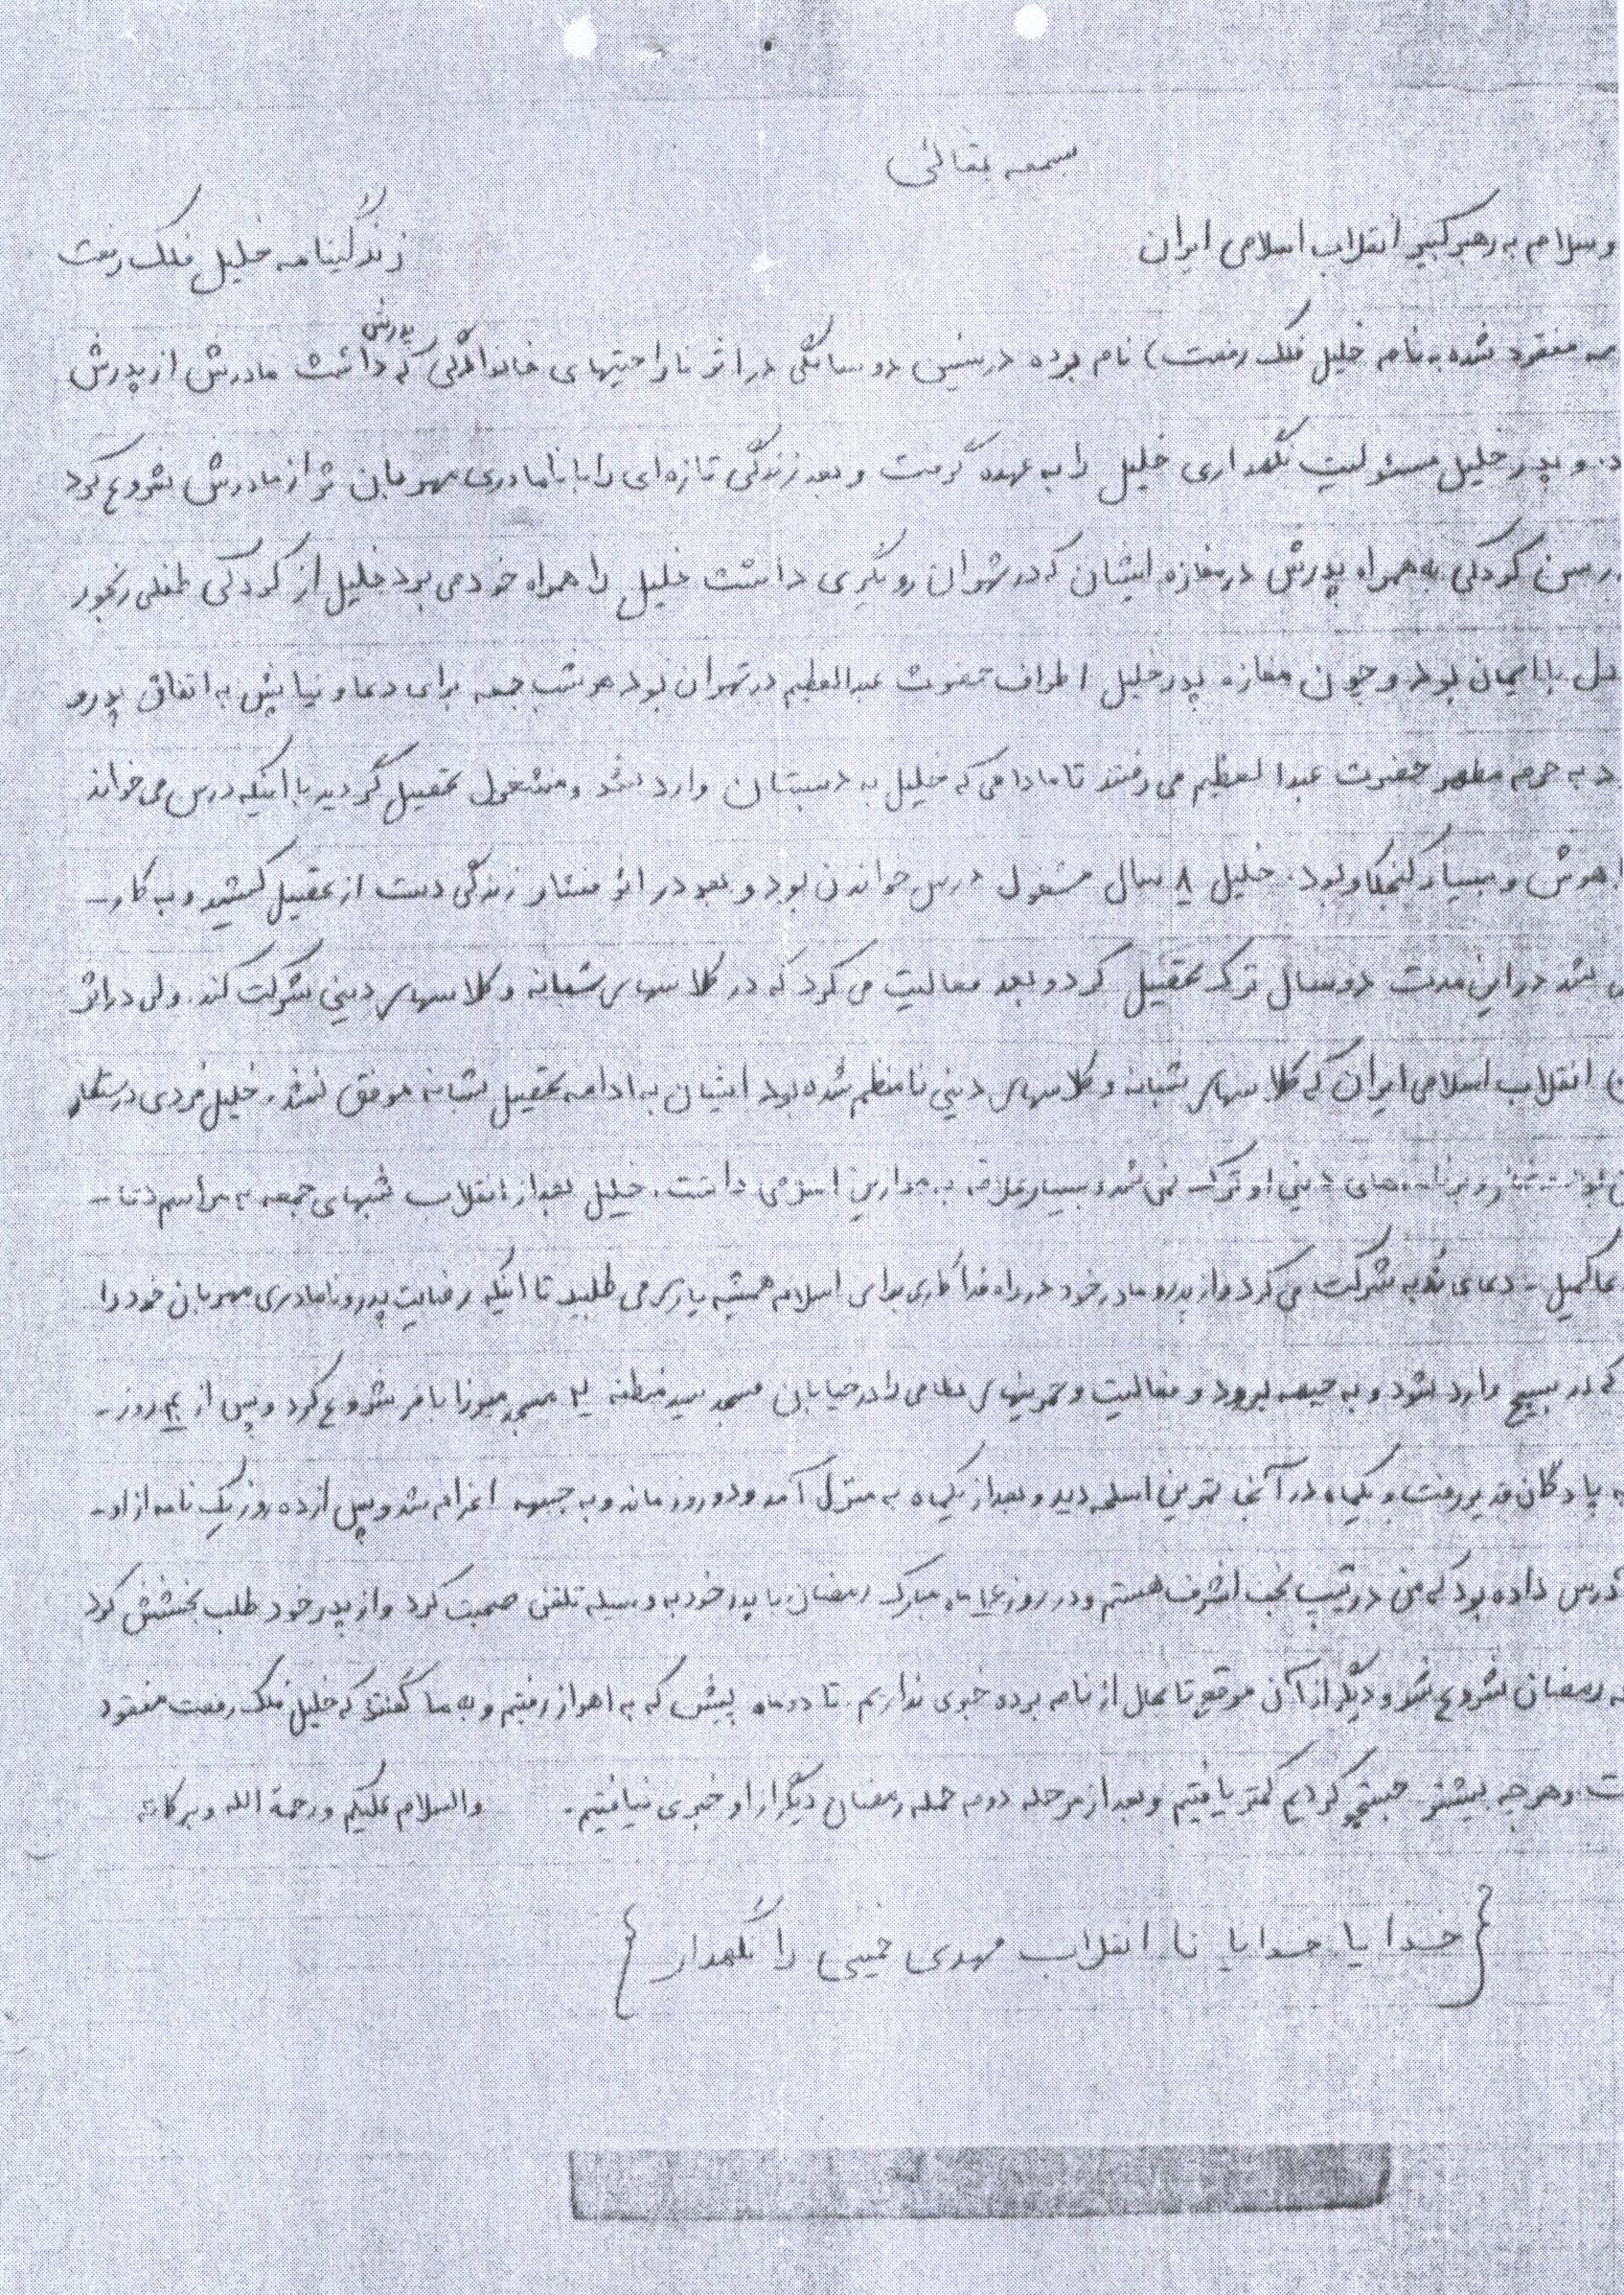 بسمعه تعالی
و سلام به رهبر کبیر انقلاب اسلامی ایران
زندگینامه خلیل فلک رفعت
مفقود شده به نام خلیل فلک رفعت) نام بوده در سنین دو سالگی در اثر ناراحتیهای خانوادگی که پدرش داشت مادرش از پدرش
و پدر خلیل مسئولیت نگهداری خلیل را به عهده گرفت و بعد زندگی تازه‌ای را با نامادری مهربان تر از مادرش شروع کرد
سن کودکی به همراه پدرش در مغازه ایشان که در تهران رویگری داشت خلیل را همراه خود می برد خلیل از کودکی طفلی رنجور
با ایمان بود و چون مغازه پدر خلیل اطراف حضرت عبدالعظیم در تهران بود هر شب جمعه برای دعا و نیایش به اتفاق پدر و
به حرم مطهر حضرت عبدالعظیم می رفتند تا مادامی که خلیل به دبستان وارد شد و مشغول تحصیل گردید با اینکه درس می خواند
هوش و بسیار کنجکاو بود. خلیل ۸ سال مشغول درس خواندن بود و بعد در اثر فشار زندگی دست از تحصیل کشید و به کار-
شد در این مدت دو سال ترک تحصیل کرد و بعد فعالیت می کرد که در کلاسهای شبانه و کلاسهای دینی شرکت کند. ولی در اثر
انقلاب اسلامی ایران که کلاسهای شبانه و کلاسهای دینی نامنظم شده بود ایشان به ادامه تحصیل شبانه موفق نشد. خلیل فردی درستکار
برنامه های دینی او ترک نمی شد و بسیار علاقه به موازین اسلامی داشت. خلیل بعد از انقلاب شبهای جمعه به مراسم دعا-
کمیل - دعای ندبه شرکت می کرد و از پدر و مادر خود در راه فداکاری برای اسلام همیشه یاری می طلبید تا اینکه رضایت پدر و نامادری مهربان خود را
که در بسیج وارد شود و به جبهه برود و فعالیت و تمرینهای نظامی را در خیابان مسجد سید منطقه مسجد میرزا باقر شروع کرد و پس از روز-
پادگان قدیر رفت و یکماه در آنجا تمرین اسلحه دید و بعد از یکماه به منزل آمد و دو روز ماند و به جبهه اعزام شد و پس از ده روز یک نامه از او-
درس داده بود که من در تیپ نجف اشرف هستم و در روز ماه مبارک رمضان با پدر خود به وسیله تلفن صحبت کرد و از پدر خود طلب بخشش کرد
رمضان شروع شد و دیگر از آن موقع تا بحال از نام برده خبری نداریم. تا دو ماه پیش که به اهواز رفتیم و به ما گفتند که خلیل فلک رفعت مفقود
و هر چه بیشتر جستجو کردیم کمتر یافتیم و بعد از مرحله دوم حمله رمضان دیگر از او خبری نیافتیم. والسلام علیکم و رحمة الله و برکاته
{خدایا خدایا تا انقلاب مهدی خمینی را نگهدار}